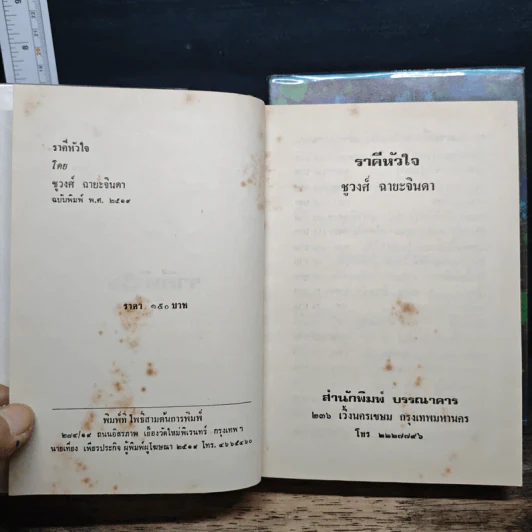 ราคีหัวใจ
โดย
ชูวงศ์ ฉายะจินดา
ฉบับพิมพ์ พ.ศ. ๒๕๑๙
ราคา ๑๕๐ บาท
พิมพ์ที่ โพธิ์สามต้นการพิมพ์
๒๗๔/๑๙ ถนนอิสรภาพ เยื้องวัดใหม่พิเรนทร์ กรุงเทพฯ
นายเที่ยง เพียรประกิจ ผู้พิมพ์ผู้โฆษณา ๒๕๑๙ โทร. ๔๖๖๕๔๖๐
ราคีหัวใจ
ชูวงศ์ ฉายะจินดา
สำนักพิมพ์ บรรณาคาร
๒๓๖ เวิ้งนครเขษม กรุงเทพมหานคร
โทร ๒๒๒๗๗๙๖